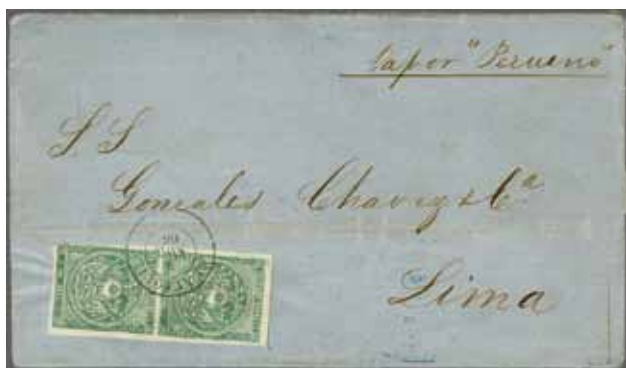 Vapor "Peruano"
S S
Gonzales Chavez & Cª
Lima